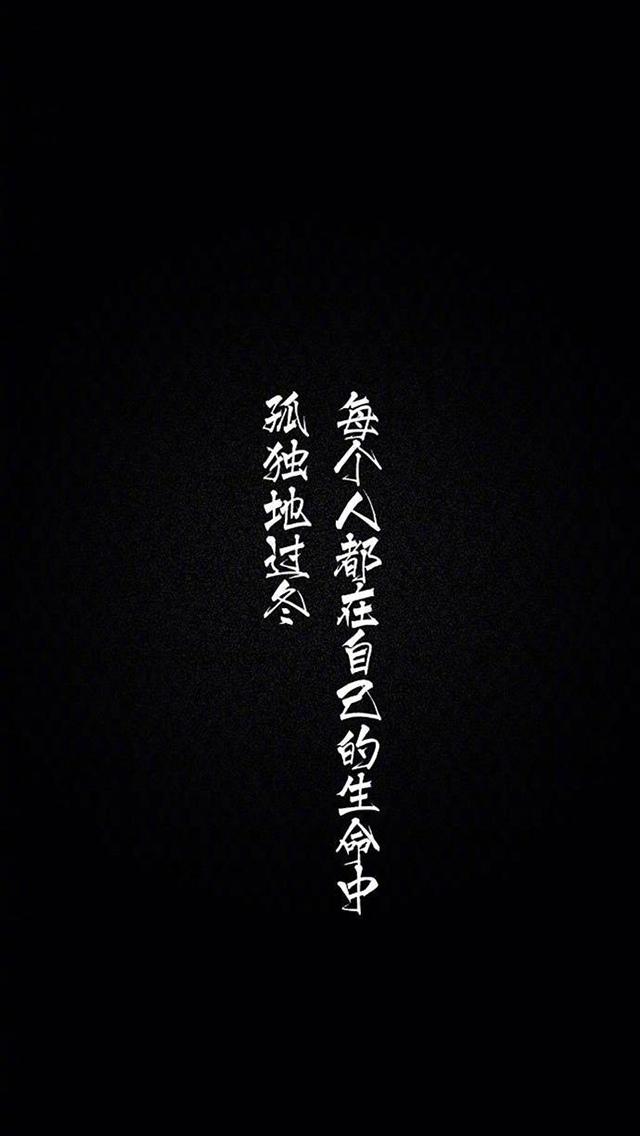 每个人都在自己的生命中
孤独地过冬